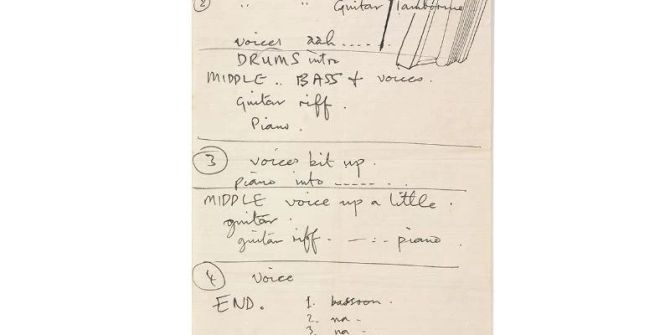 ② " " Guitar Tambourine
voices aah .....
DRUMS intro
MIDDLE .. BASS + voices.
Guitar riff.
Piano.
③ voices bit up.
piano into -----.
MIDDLE voice up a little.
guitar.
guitar riff. —:- piano
④ voice
END. 1. bassoon.
2. na -
3. na -